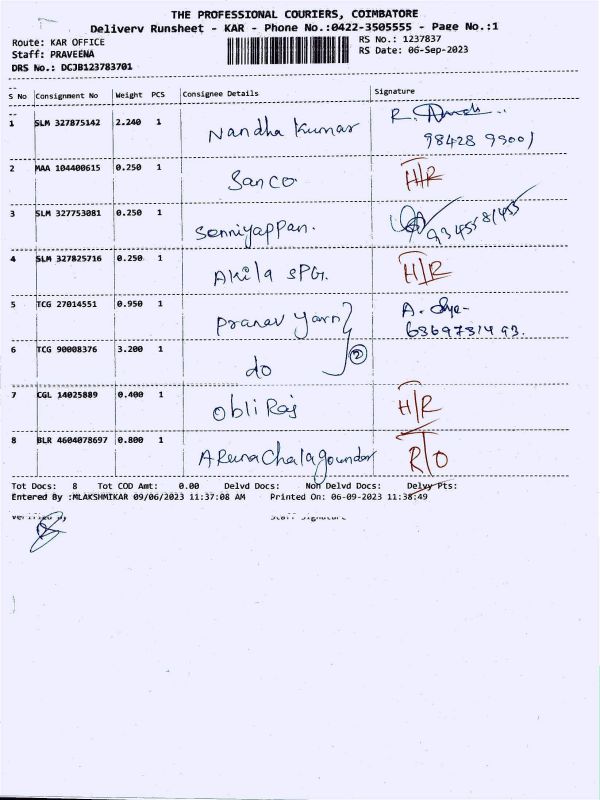 THE PROFESSIONAL COURIERS, COIMBATORE
Delivery Runsheet - KAR - Phone No.:0422-3505555 - Page No.:1
Route: KAR OFFICE
RS No.: 1237837
Staff: PRAVEENA
RS Date: 06-Sep-2023
DRS No.: DCJB123783701
S No Consignment No Weight PCS Consignee Details Signature
1 SLM 327875142 2.240 1 Nandha Kumar R.
98428 99001
2 MAA 104400615 0.250 1 Sanco H/R
3 SLM 327753081 0.250 1 Senniyappan.
4 SLM 327825716 0.250 1 Akila SPG. H/R
5 TCG 27014551 0.950 1 Pranav Yarn A.
6 TCG 90008376 3.200 1 do 2
7 CGL 14025889 0.400 1 Obli Raj H/R
8 BLR 4604078697 0.800 1 ARunachalagounder R/O
Tot Docs: 8 Tot COD Amt: 0.00 Delvd Docs: Non Delvd Docs: Delvy Pts:
Entered By :MLAKSHMIKAR 09/06/2023 11:37:08 AM Printed On: 06-09-2023 11:38:49
Verified By
Staff Signature